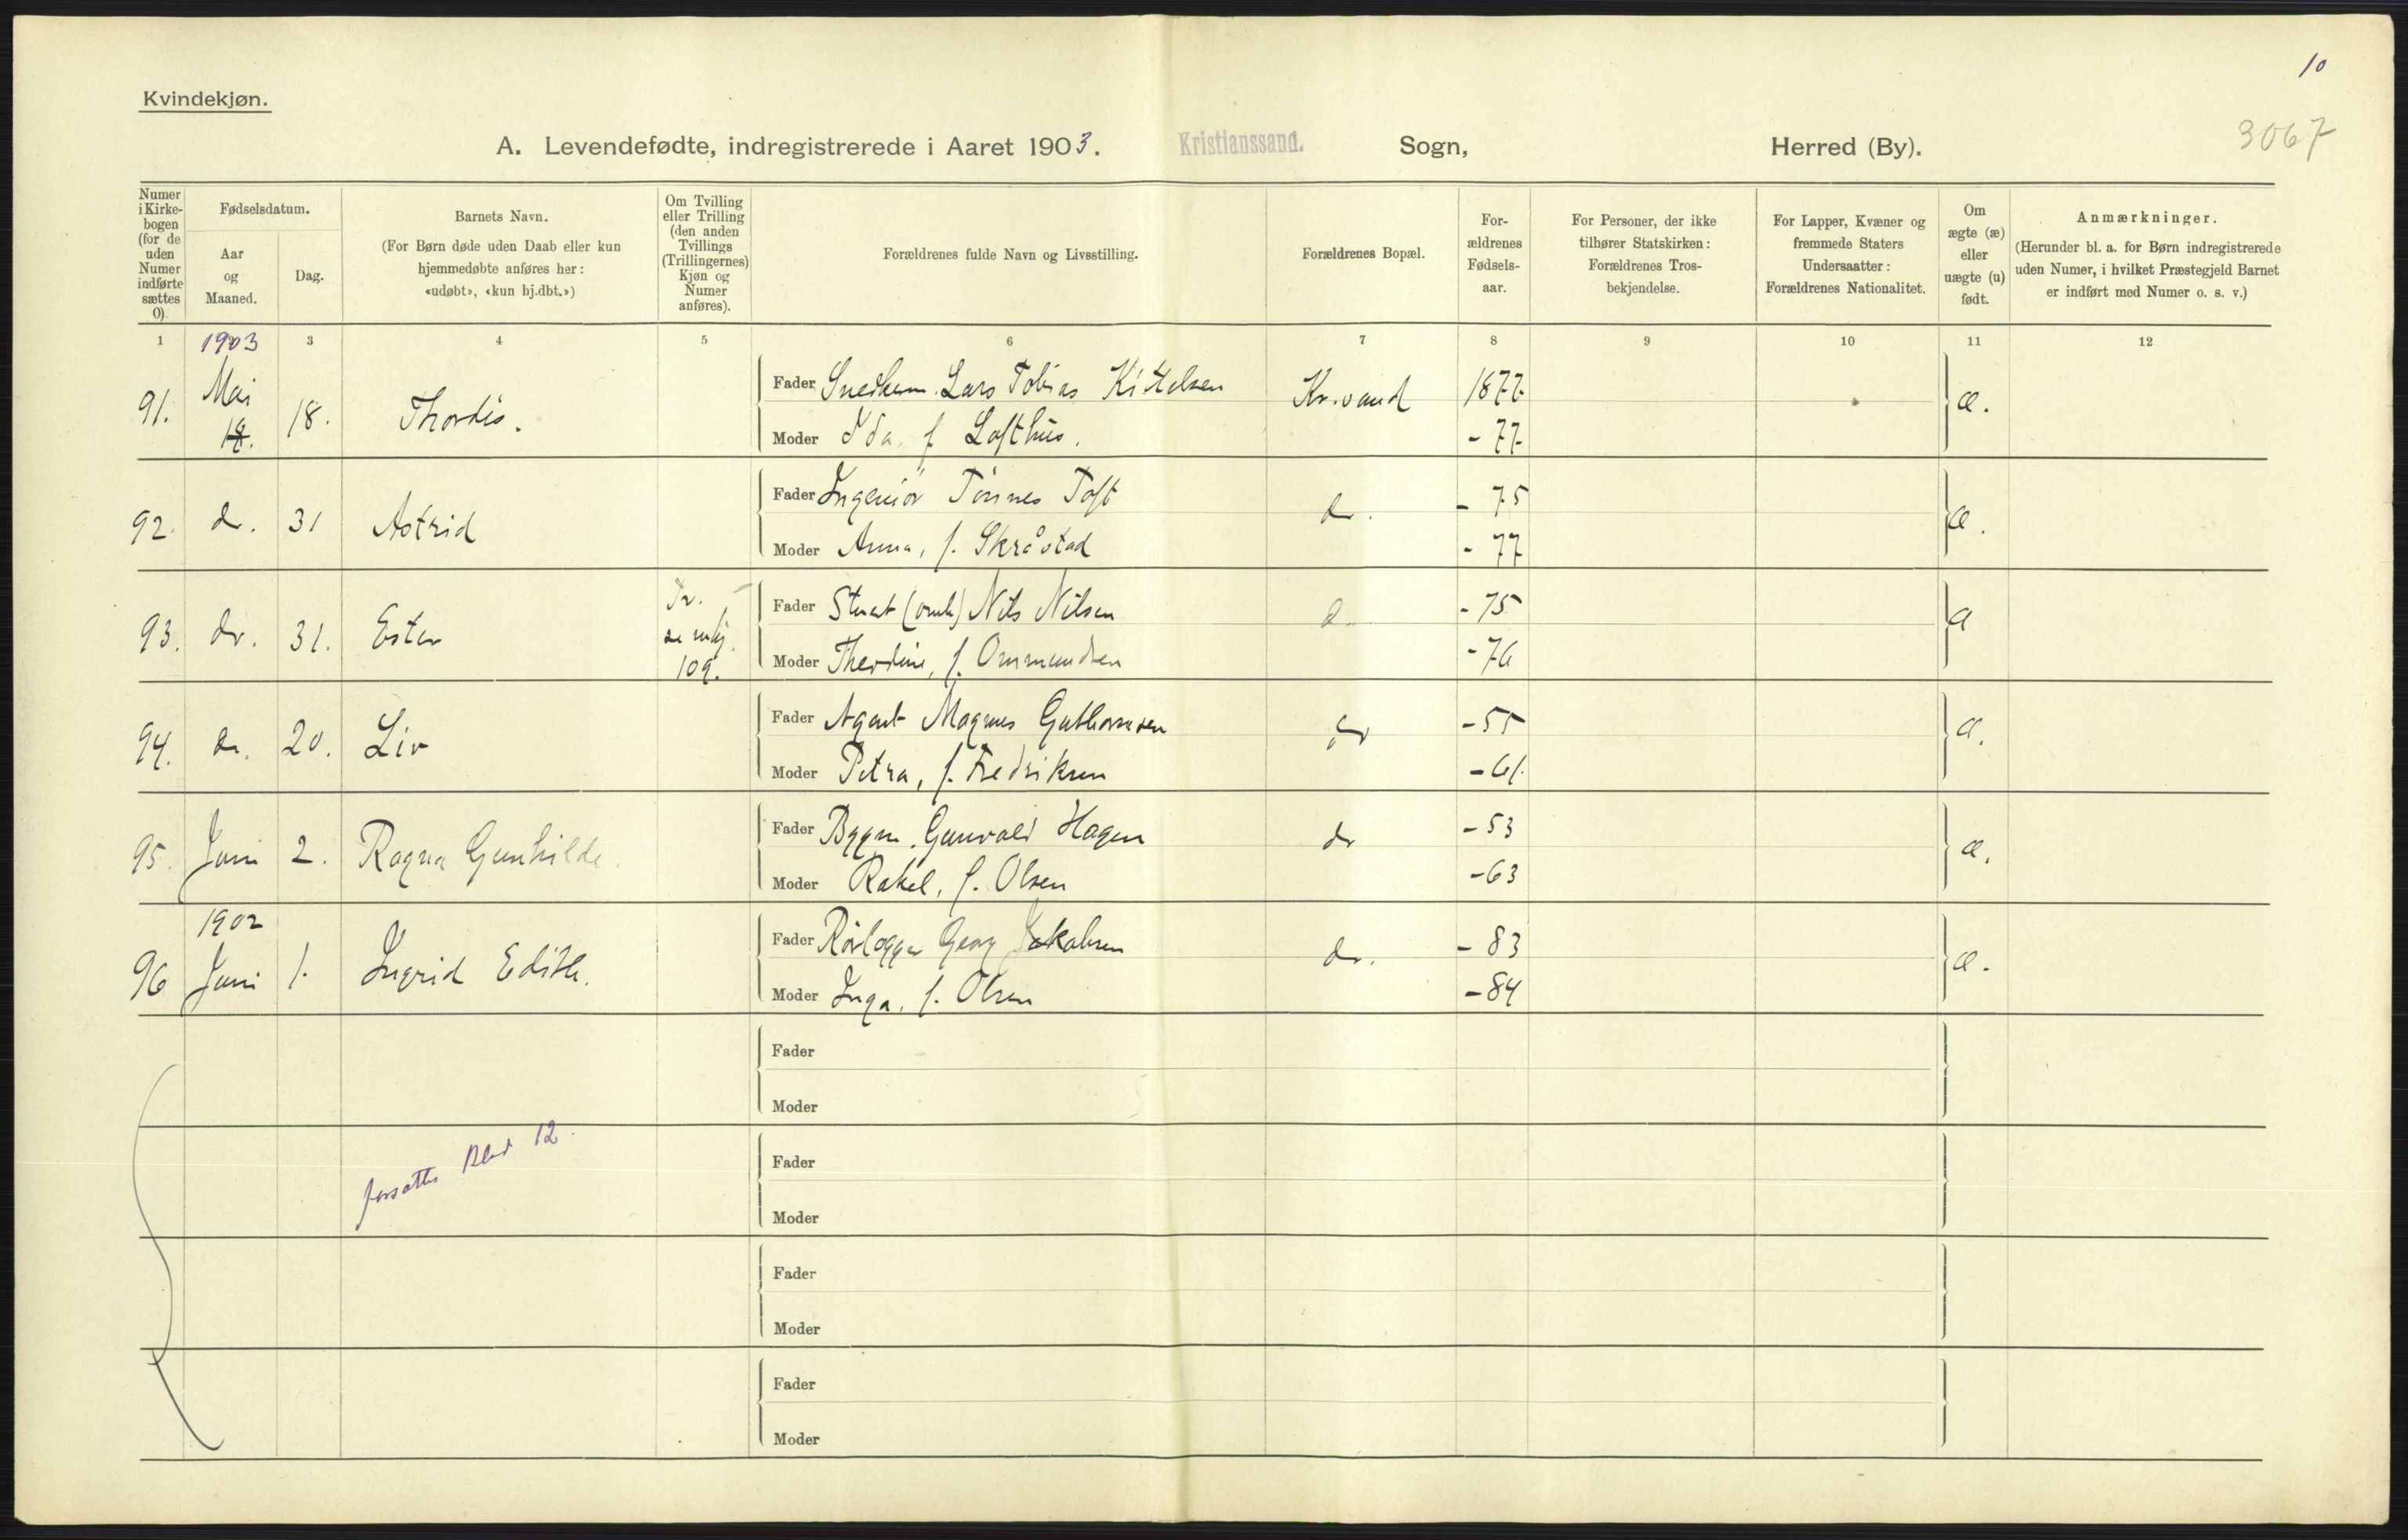 10
Kvindekjøn.
3067
A. Levendefødte, indregistrerede i Aaret 1903. Kristianssand. Sogn, Herred (By).
Numer i Kirke-bogen (for de uden Numer indførte sættes 0)
Fødselsdatum.
Aar og Maaned.
Dag.
Barnets Navn.
(For Børn døde uden Daab eller kun
hjemmedøbte anføres her:
«udøbt», «kun hj.dbt.»)
Om Tvilling
eller Trilling
(den anden
Tvillings
(Trillingernes)
Kjøn og
Numer
anføres).
Forældrenes fulde Navn og Livsstilling.
Forældrenes Bopæl.
For-
ældrenes
Fødsels-
aar.
For Personer, der ikke
tilhører Statskirken:
Forældrenes Tros-
bekjendelse.
For Lapper, Kvæner og
fremmede Staters
Undersaatter:
Forældrenes Nationalitet.
Om
ægte (æ)
eller
uægte (u)
født.
Anmærkninger.
(Herunder bl. a. for Børn indregistrerede
uden Numer, i hvilket Præstegjeld Barnet
er indført med Numer o. s. v.)
1 1903 3 4 5 6 7 8 9 10 11 12
91. Mai 18. Thordis. Fader Snedkerm. Lars Tobias Kittelsen Kr.sand 1877 æ.
Moder Ida, f. Lofthus. - 77
92. do. 31 Astrid Fader Ingeniør Tønnes Toft do. - 75 æ.
Moder Anna, f. Skråstad - 77
93. do. 31. Ester Fader Nils Nilsen do - 75 æ
109. Moder f. Ommundsen - 76
94. do. 20. Liv Fader Agent Magnus Guthormsen do - 55 æ.
Moder Petra, f. Fredriksen - 61.
95. Juni 2. Ragna Gunhilde. Fader Bygm. Gunvald Hagen do - 53 æ.
Moder Rakel, f. Olsen - 63
96 1902 Juni 1. Ingrid Edith. Fader Rørlægger Georg Jakobsen do. - 83 æ.
Moder Inga, f. Olsen - 84
Fader
Moder
forsattes Blad 12.
Fader
Moder
Fader
Moder
Fader
Moder